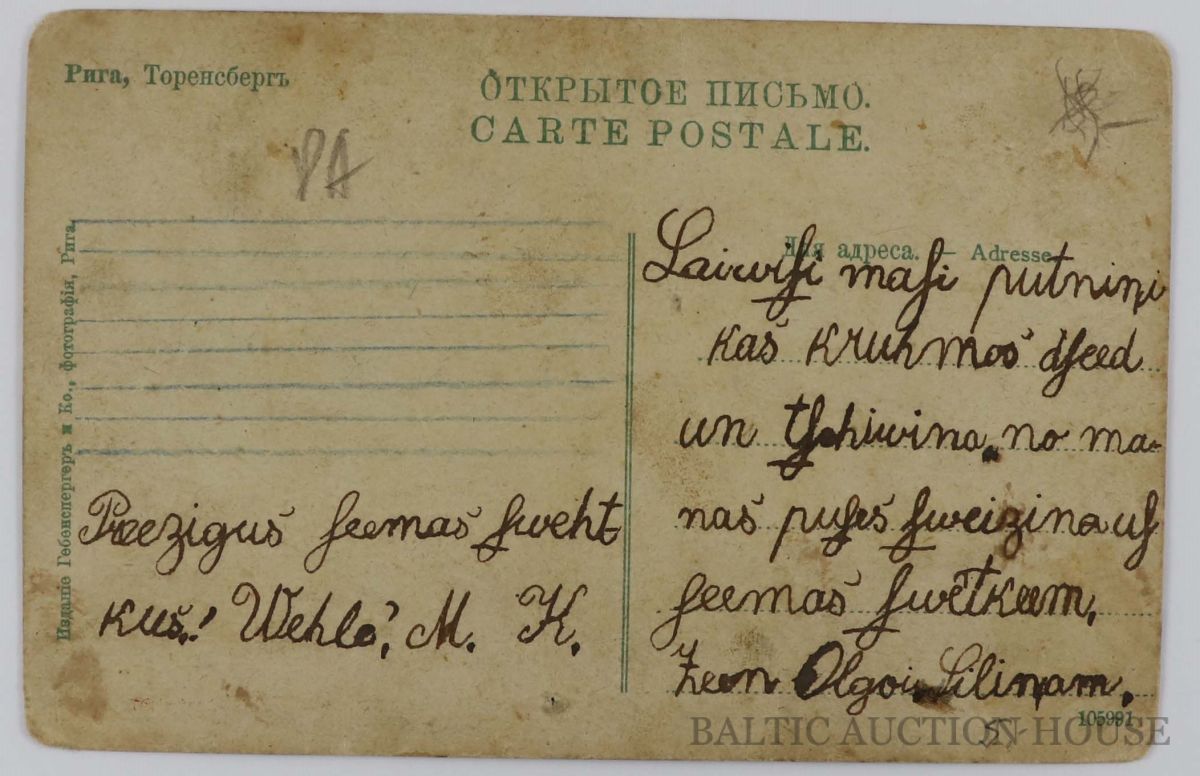 Рига, Торенсбергъ
ОТКРЫТОЕ ПИСЬМО.
CARTE POSTALE.
PA
Для адреса. — Adresse
Издание Гебенспергеръ и Ко., фотографія, Рига.
Preezigus ſeemas ſweht
kus! Wehlē! M. K.
maſi putniņi
kas kruhmos dſeed
un tſchiwina no ma-
nas puſes ſweizina uſ
ſeemas ſwētkeem.
Zeen Olgai Siliņam.
105991
BALTIC AUCTION HOUSE